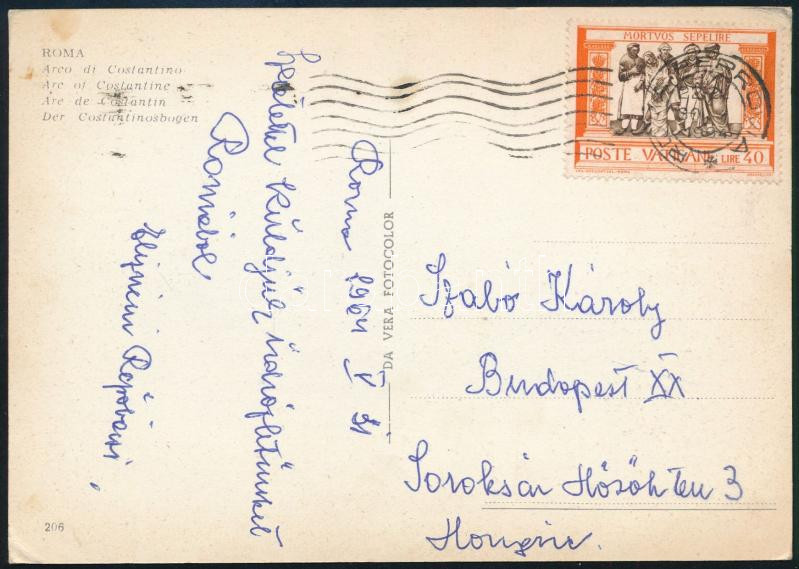 ROMA
Arco di Costantino
Arc of Costantine
Arc de Costantin
Der Costantinosbogen
206
DA VERA FOTOCOLOR
MORTVOS SEPELIRE
POSTE VATICANE LIRE 40
Roma 1961 V 31
küldjük üdvözletünket
Rómából
Szabó Károly
Budapest XX
Soroksár Hősök tere 3
Hongrie.